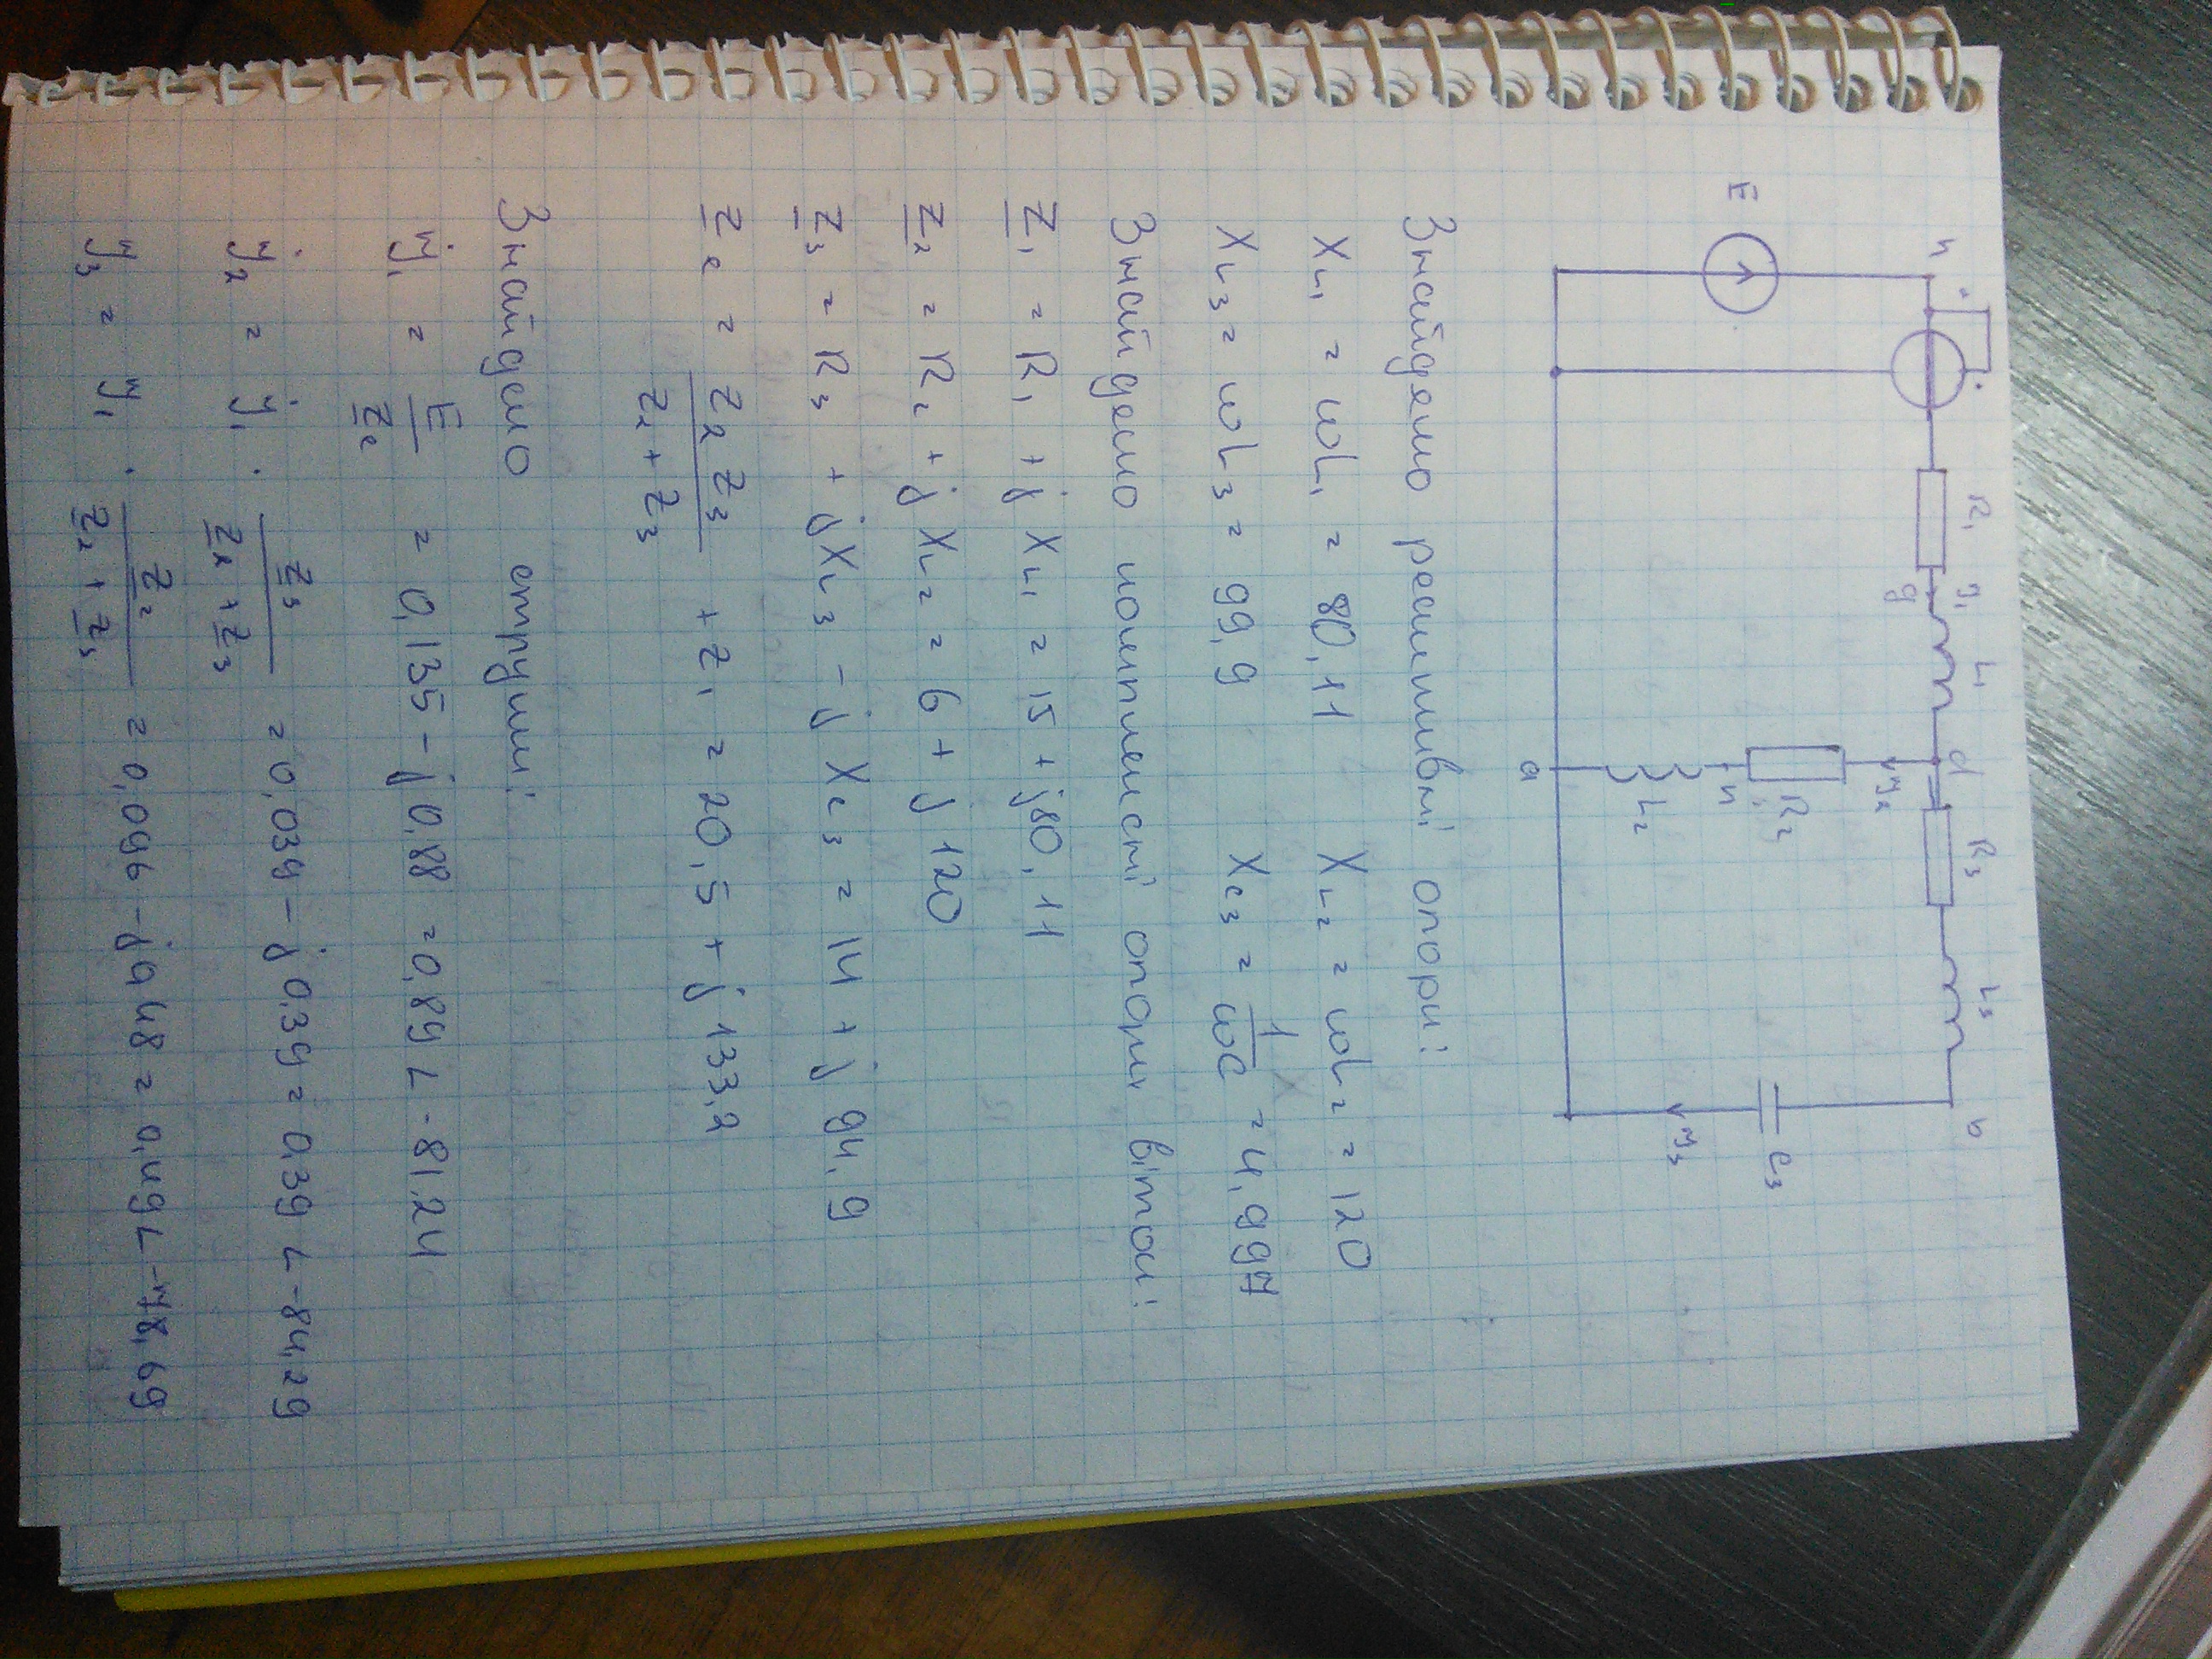 E
n
*
*
R₁
J₁
g
L₁
d
R₃
L₃
b
J₂
R₂
n
L₂
a
C₃
J₃
Знайдемо реактивні опори:
X_L₁ = ωL₁ = 80,11 X_L₂ = ωL₂ = 120
X_L₃ = ωL₃ = 99,9 X_C₃ = 1/ωC = 4,997
Знайдемо комплексні опори віток:
Z₁ = R₁ + jX_L₁ = 15 + j80,11
Z₂ = R₂ + jX_L₂ = 6 + j120
Z₃ = R₃ + jX_L₃ - jX_C₃ = 14 + j94,9
Z_e = Z₂Z₃/(Z₂ + Z₃) + Z₁ = 20,5 + j133,2
Знайдемо струми:
J̇₁ = E/Z_e = 0,135 - j0,88 = 0,89∠-81,24
J̇₂ = J̇₁ · Z₃/(Z₂ + Z₃) = 0,039 - j0,39 = 0,39∠-84,29
J₃ = J₁ · Z₂/(Z₂ + Z₃) = 0,096 - j0,48 = 0,49∠-78,69